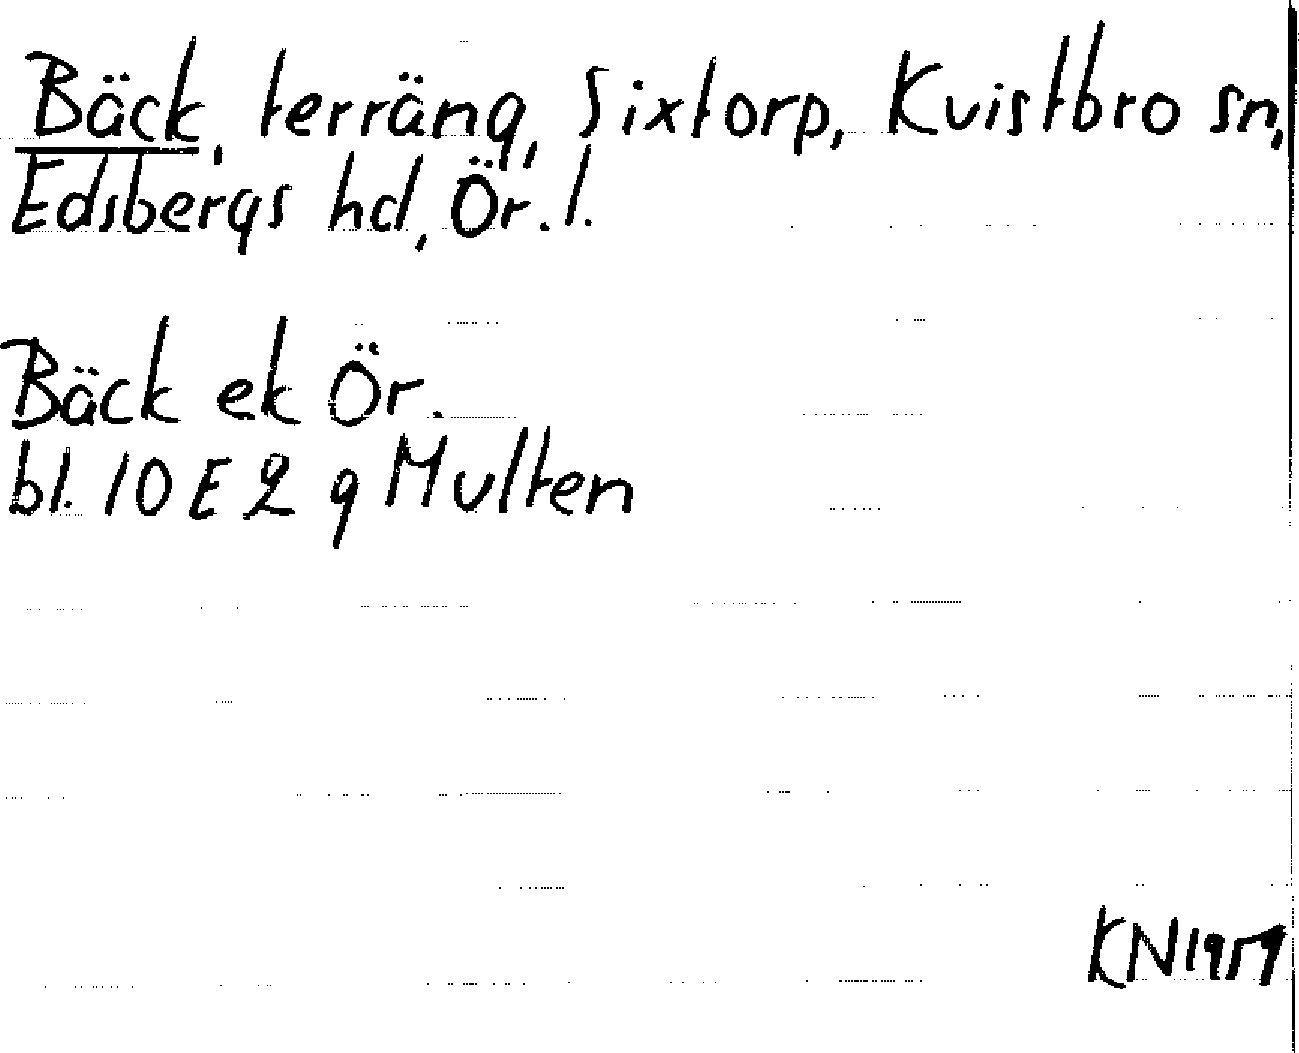 Bäck, terräng, Sixtorp, Kvistbro sn,
Edsbergs hd, Ör. l.
Bäck ek Ör.
bl. 10 E 2 g Multen